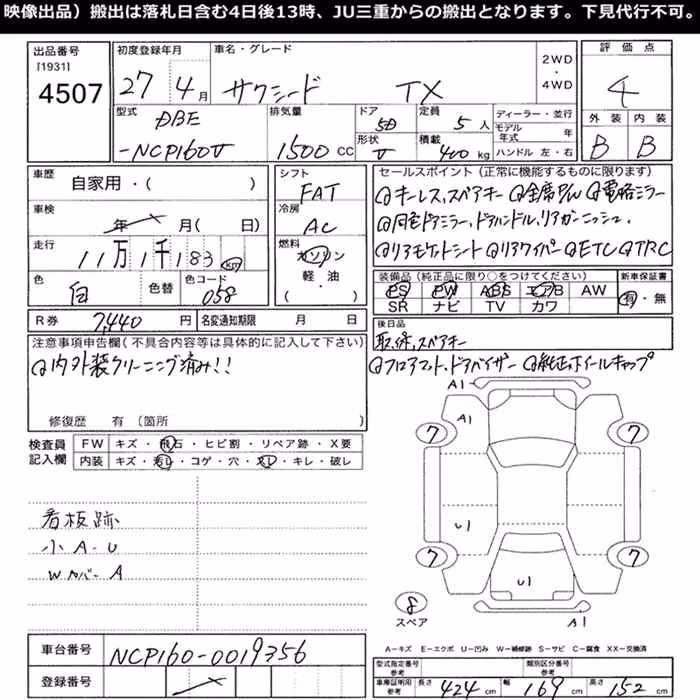 映像出品）搬出は落札日含む4日後13時、JU三重からの搬出となります。下見代行不可。
出品番号
[1931]
4507
初度登録年月
27年4月
車名・グレード
サクシード TX
2WD
・
4WD
評価点
4
外装 内装
B B
型式
DBE
-NCP160V
排気量
1500 CC
ドア
5D
形状
V
定員
5人
積載
400kg
ディーラー・並行
モデル年式 年
ハンドル 左・右
車歴
自家用・( )
車検
年 月( 日)
走行
11万1千183 km
色
白
色替
色コード
058
シフト
FAT
冷房
AC
燃料
ガソリン
軽・油
( )
セールスポイント（正常に機能するものに限ります）
◎キーレス,スペアキー ◎全席P/W ◎電格ミラー
◎同色ドアミラー,ドアハンドル,リアガーニッシュ.
◎リアモケットシート ◎リアワイパー ◎ETC ◎TRC
装備品（純正品に限り○をつけてください）
PS PW ABS エアB AW
SR ナビ TV カワ
新車保証書
有・無
R券 7,440円
名変通知期限 月 日
後日品
取,保,スペアキー
注意事項申告欄(不具合内容等は具体的に記入して下さい)
◎内外装クリーニング済み!!
◎フロアマット,ドアバイザー ◎純正ホイールキャップ
修復歴 有〔箇所 〕
検査員
記入欄
FW キズ・飛石・ヒビ割・リペア跡・X要
内装 キズ・汚レ・コゲ・穴・スレ・キレ・破レ
看板跡
小A.U
Wカバー A
A1
A1
7 7
U1
7 7
U1
8
スペア
A1
A=キズ E=エクボ U=凹み W=補修跡 S=サビ C=腐食 XX=交換済
車台番号 NCP160-0019356
登録番号
型式指定番号
参考
類別区分番号
参考
車庫証明用
参考
長さ 424 cm 幅 169 cm 高さ 152 cm